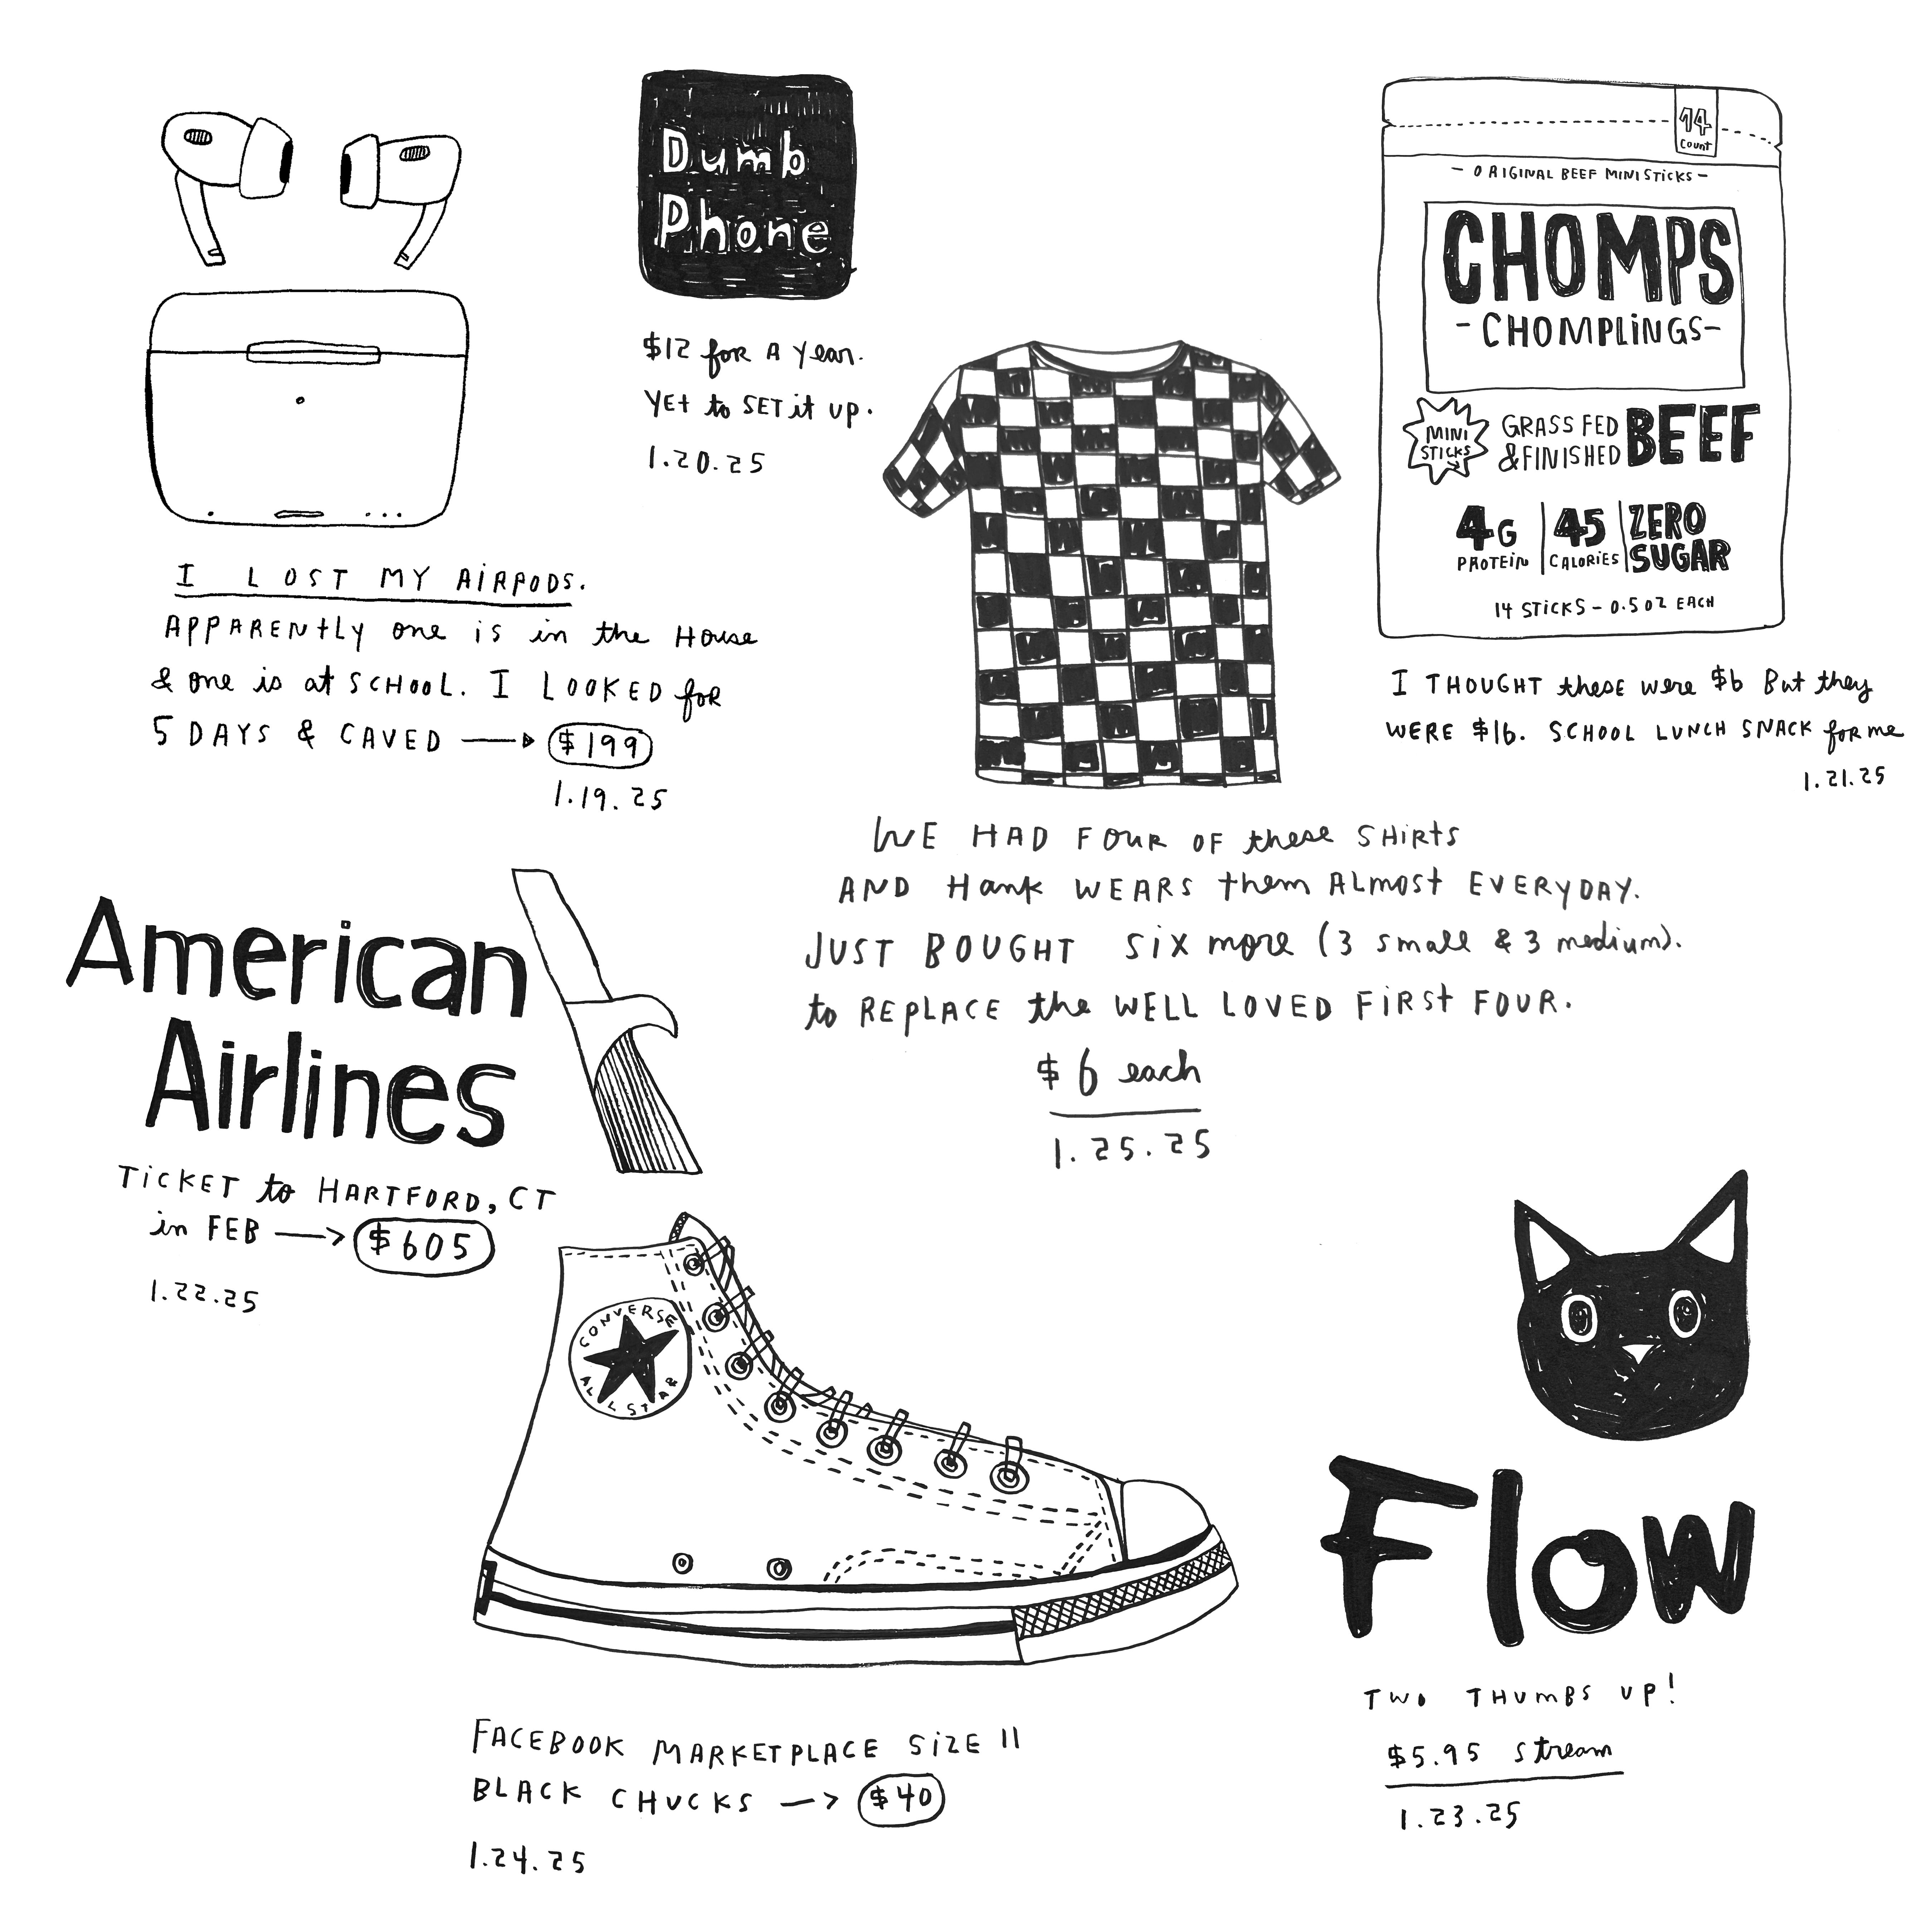 I LOST MY AIRPODS.
APPARENTLY one is in the House
& one is at SCHOOL. I LOOKED for
5 DAYS & CAVED → $199
1.19.25
Dumb
Phone
$12 for A year.
YET to SET it UP.
1.20.25
14
count
- ORIGINAL BEEF MINI STICKS -
CHOMPS
- CHOMPLINGS -
MINI
STICKS
GRASS FED
& FINISHED
BEEF
4G
PROTEIN
45
CALORIES
ZERO
SUGAR
14 STICKS - 0.5 OZ EACH
I THOUGHT these were $6 But they
WERE $16. SCHOOL LUNCH SNACK for me
1.21.25
WE HAD FOUR OF these SHIRTS
AND Hank WEARS them ALMOST EVERYDAY.
JUST BOUGHT SIX more (3 small & 3 medium).
to REPLACE the WELL LOVED FIRST FOUR.
$6 each
1.25.25
American
Airlines
TICKET to HARTFORD, CT
in FEB → $605
1.22.25
CONVERSE
ALL STAR
FACEBOOK MARKETPLACE SIZE 11
BLACK CHUCKS → $40
1.24.25
Flow
TWO THUMBS UP!
$5.95 stream
1.23.25